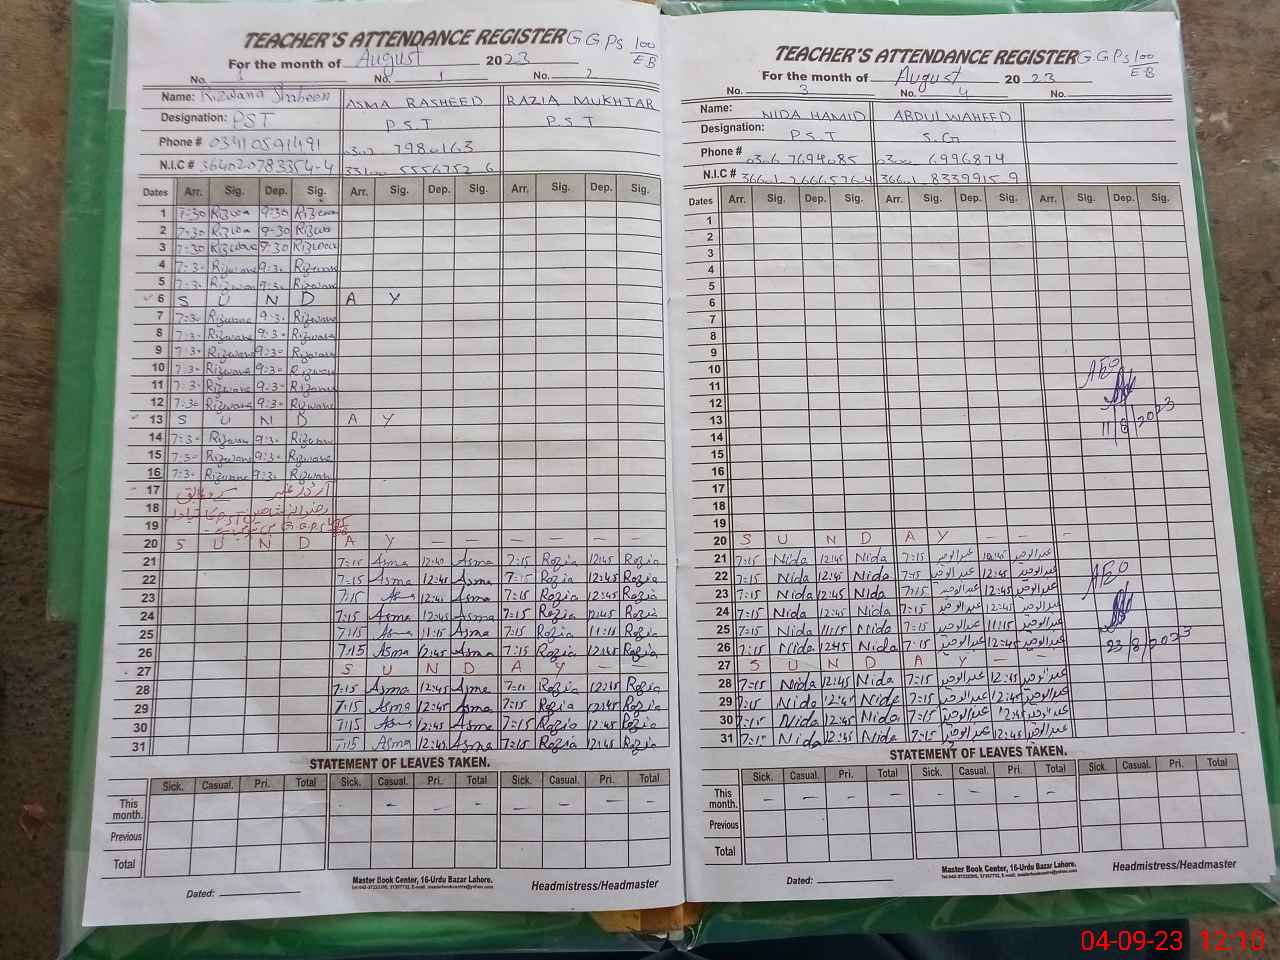 TEACHER'S ATTENDANCE REGISTER GGPS 100/EB
For the month of August 2023
No. 1 No. 1 No. 2
Name: Rizwana Shaheen ASMA RASHEED RAZIA MUKHTAR
Designation: PST P.S.T P.S.T
Phone # 03410591491
N.I.C # 364020783354-4
Dates Arr. Sig. Dep. Sig. Arr. Sig. Dep. Sig. Arr. Sig. Dep. Sig.
1 7:30 Rizwana 9:30 Rizwana
2 7:30 Rizwana 9:30 Rizwana
3 7:30 Rizwana 9:30 Rizwana
4 7:30 Rizwana 9:30 Rizwana
5 7:30 Rizwana 9:30 Rizwana
6 S U N D A Y
7 7:30 Rizwana 9:30 Rizwana
8 7:30 Rizwana 9:30 Rizwana
9 7:30 Rizwana 9:30 Rizwana
10 7:30 Rizwana 9:30 Rizwana
11 7:30 Rizwana 9:30 Rizwana
12 7:30 Rizwana 9:30 Rizwana
13 S U N D A Y
14 7:30 Rizwana 9:30 Rizwana
15 7:30 Rizwana 9:30 Rizwana
16 7:30 Rizwana 9:30 Rizwana
17
18
19
20 S U N D A Y – – – – – –
21 7:15 Asma 12:45 Asma 7:15 Razia 12:45 Razia
22 7:15 Asma 12:45 Asma 7:15 Razia 12:45 Razia
23 7:15 Asma 12:45 Asma 7:15 Razia 12:45 Razia
24 7:15 Asma 12:45 Asma 7:15 Razia 12:45 Razia
25 7:15 Asma 11:15 Asma 7:15 Razia 11:15 Razia
26 7:15 Asma 12:45 Asma 7:15 Razia 12:45 Razia
27 S U N D A Y – –
28 7:15 Asma 12:45 Asma 7:15 Razia 12:45 Razia
29 7:15 Asma 12:45 Asma 7:15 Razia 12:45 Razia
30 7:15 Asma 12:45 Asma 7:15 Razia 12:45 Razia
31 7:15 Asma 12:45 Asma 7:15 Razia 12:45 Razia
STATEMENT OF LEAVES TAKEN.
Sick. Casual. Pri. Total Sick. Casual. Pri. Total Sick. Casual. Pri. Total
This month. – – – – – – – –
Previous
Total
Master Book Center, 16-Urdu Bazar Lahore.
Dated: Headmistress/Headmaster
TEACHER'S ATTENDANCE REGISTER GGPS 100/EB
For the month of August 2023
No. 3 No. 4 No.
Name: NIDA HAMID ABDUL WAHEED
Designation: P.S.T S.G
Phone # 0306 7694085 0300 6996874
N.I.C #
Dates Arr. Sig. Dep. Sig. Arr. Sig. Dep. Sig. Arr. Sig. Dep. Sig.
1
2
3
4
5
6
7
8
9
10 AEO
11
12
13 11/8/2023
14
15
16
17
18
19
20 S U N D A Y – – –
21 7:15 Nida 12:45 Nida 7:15 عبدالوحید 12:45 عبدالوحید
22 7:15 Nida 12:45 Nida 7:15 عبدالوحید 12:45 عبدالوحید AEO
23 7:15 Nida 12:45 Nida 7:15 عبدالوحید 12:45 عبدالوحید
24 7:15 Nida 12:45 Nida 7:15 عبدالوحید 12:45 عبدالوحید
25 7:15 Nida 11:15 Nida 7:15 عبدالوحید 11:15 عبدالوحید
26 7:15 Nida 12:45 Nida 7:15 عبدالوحید 12:45 عبدالوحید 23/8/2023
27 S U N D A Y – –
28 7:15 Nida 12:45 Nida 7:15 عبدالوحید 12:45 عبدالوحید
29 7:15 Nida 12:45 Nida 7:15 عبدالوحید 12:45 عبدالوحید
30 7:15 Nida 12:45 Nida 7:15 عبدالوحید 12:45 عبدالوحید
31 7:15 Nida 12:45 Nida 7:15 عبدالوحید 12:45 عبدالوحید
STATEMENT OF LEAVES TAKEN.
Sick. Casual. Pri. Total Sick. Casual. Pri. Total Sick. Casual. Pri. Total
This month. – – – – – – – –
Previous
Total
Master Book Center, 16-Urdu Bazar Lahore.
Dated: Headmistress/Headmaster
04-09-23 12:10